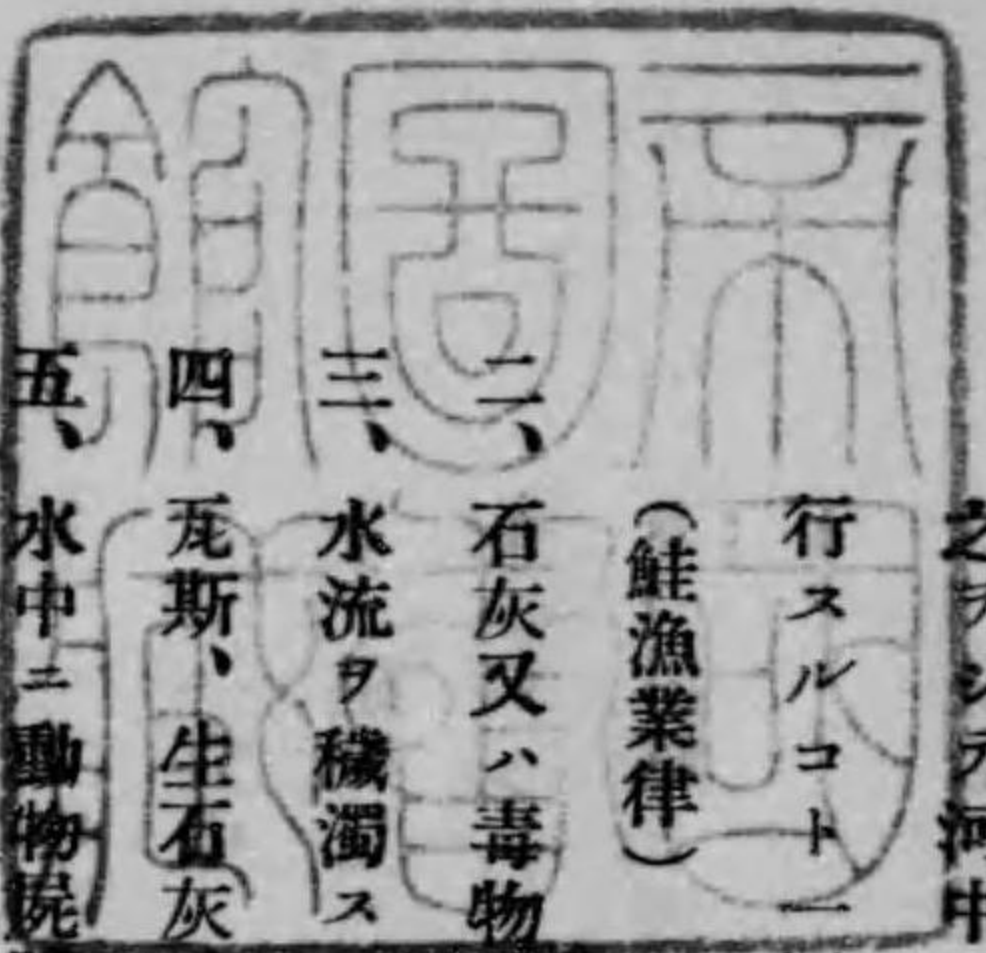 之ヲシテ河中
行スルコト一
(鮭漁業律)
二、石灰又ハ毒物
三、水流ヲ穢濁ス
四、瓦斯、生石灰
五、水中ニ動物屍